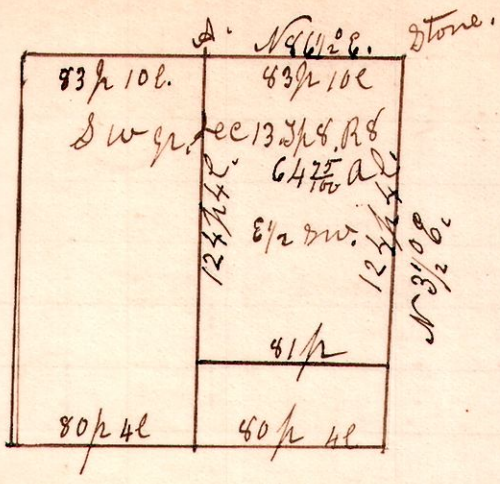 A. N 86½° E. Stone.
83 p 10 l. 83 p 10 l
S W qr. Sec 13. Tp 8. R 8
64 75/100 a
124 p 4 l. 124 p 4 l.
E ½ SW.
N 3½° E.
81 p
80 p 4 l 80 p 4 l